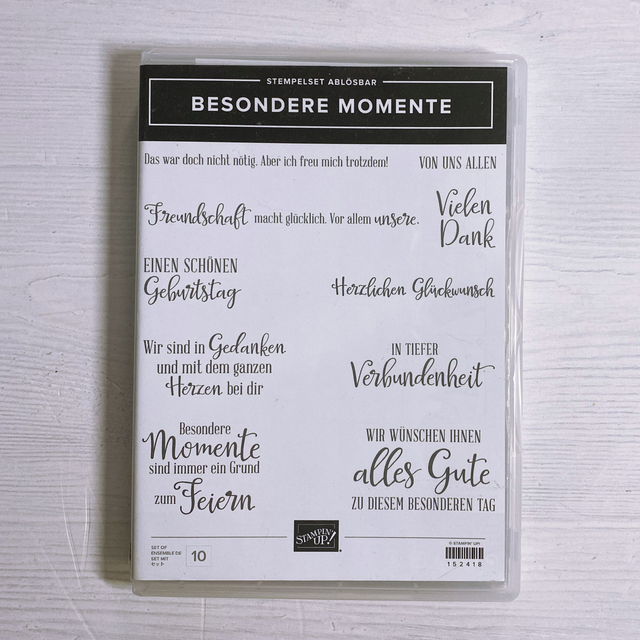 STEMPELSET ABLÖSBAR
BESONDERE MOMENTE
Das war doch nicht nötig. Aber ich freu mich trotzdem!
VON UNS ALLEN
Freundschaft macht glücklich. Vor allem unsere.
Vielen
Dank
EINEN SCHÖNEN
Geburtstag
Herzlichen Glückwunsch
Wir sind in Gedanken
und mit dem ganzen
Herzen bei dir
IN TIEFER
Verbundenheit
Besondere
Momente
sind immer ein Grund
zum Feiern
WIR WÜNSCHEN IHNEN
alles Gute
ZU DIESEM BESONDEREN TAG
STAMPIN' UP!
SET OF
ENSEMBLE DE
SET MIT
セット
10
© STAMPIN' UP!
152418